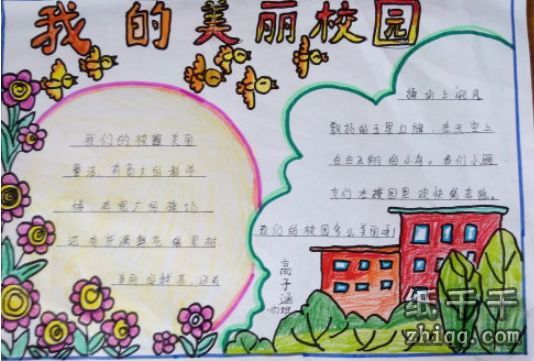 我的美丽校园
我们的校园美丽
整洁，有高大的教学
楼，有宽广的操场
还有开满鲜花的果树
美丽的鲜花，还有
操场上迎风
飘扬的五星红旗，在天空上
自由飞翔的小鸟。我们小朋
友们在校园里欢快的
我们的校园多么美丽啊！
高子涵
一班
纸干干
zhiqq.com